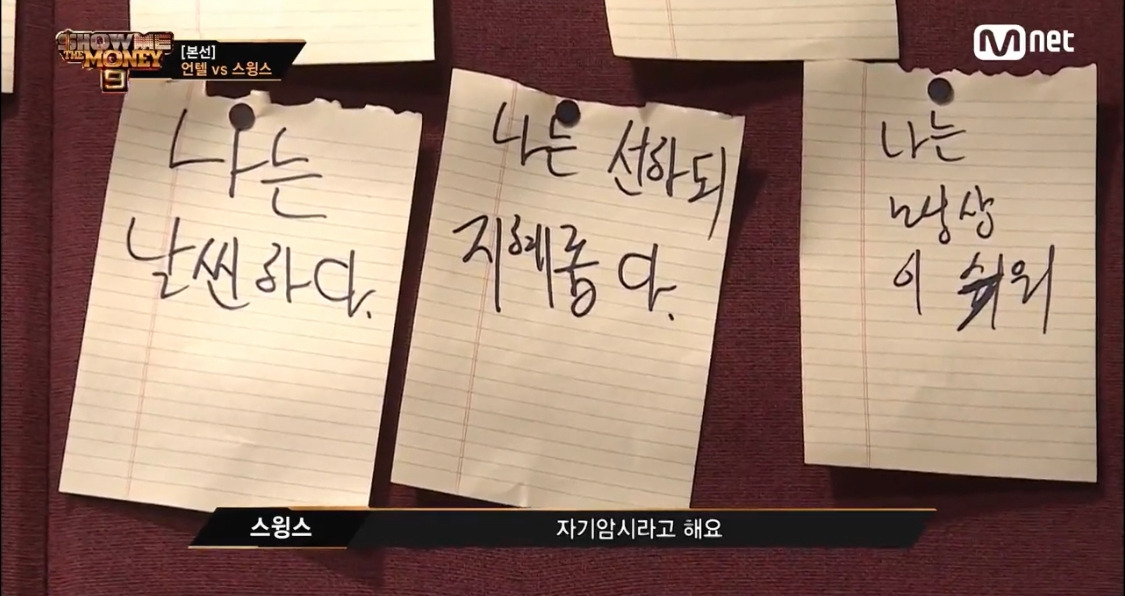 SHOW ME
THE MONEY
9
[본선]
언텔 vs 스윙스
Mnet
나는
날씬하다.
나는 선하되
지혜롭다.
나는
명상
이 쉬워
스윙스
자기암시라고 해요